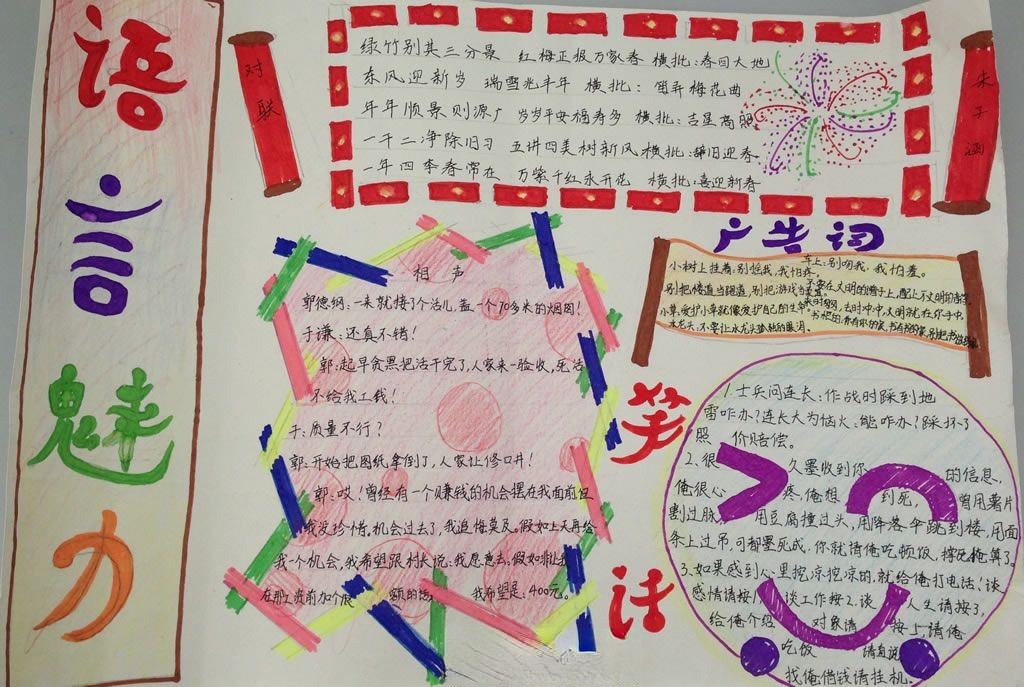 语言魅力
对联
绿竹别其三分景 红梅正报万家春 横批:春回大地
东风迎新岁 瑞雪兆丰年 横批: 笛弄梅花曲
年年顺景则源广 岁岁平安福寿多 横批:吉星高照
一干二净除旧习 五讲四美树新风 横批:辞旧迎春
一年四季春常在 万紫千红永开花 横批:喜迎新春
朱子涵
相声
郭德纲:一来就接了个活儿,盖一个70多米的烟囱!
于谦:还真不错!
郭:起早贪黑把活干完了,人家来一验收,死活
不给我工钱!
于:质量不行?
郭:开始把图纸拿倒了,人家让修口井!
郭:哎!曾经有一个赚钱的机会摆在我面前但
我没珍惜,机会过去了,我追悔莫及。假如上天再给
我一个机会,我希望跟村长说:我愿意去,假如非让我
在那上前加个 额的话 我希望是:400元。
广告词
小树上挂着:别摇我,我怕疼。
车上:别吻我,我怕羞。
别把楼道当跑道,别把游戏当
小草:爱护小草就像爱护自己的生命
水龙头:不要让水龙头孤独的
笑话
1.士兵问连长:作战时踩到地
雷咋办?连长大为恼火:能咋办?踩坏了
照 价赔偿。
2.很 久墨收到你 的信息,
俺很心 疼,俺想 到死, 曾用薯片
割过脉, 用豆腐撞过头,用降落伞跳到楼,用面
条上过吊,可都墨死成,你就请俺吃顿饭,撑死俺算了。
3.如果感到心里挖凉挖凉的,就给俺打电话!谈
感情请按1, 谈工作按2,谈 人生请按3,
给俺介绍 对象请 按5,请俺
吃饭 请直说
找俺借钱请挂机。